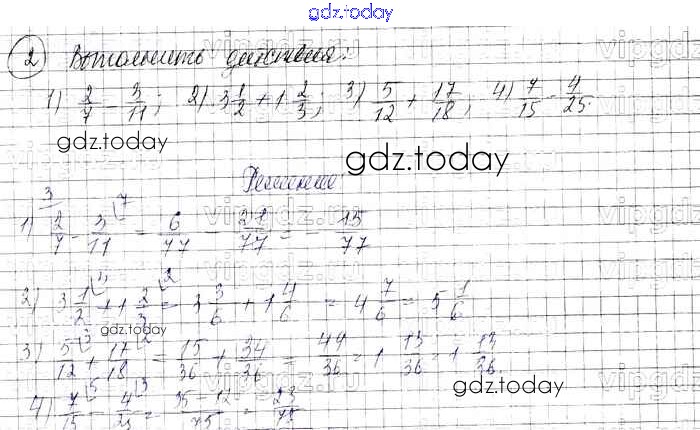 gdz.today
2 Выполнить действия:
1) 2/7 - 3/11; 2) 3 1/2 + 1 2/3; 3) 5/12 + 17/18; 4) 7/15 - 4/25.
gdz.today
gdz.today
Решение
1) 2/7 - 3/11 = 6/77 - 21/77 = - 15/77
2) 3 1/2 + 1 2/3 = 3 3/6 + 1 4/6 = 4 7/6 = 5 1/6
gdz.today
3) 5/12 + 17/18 = 15/36 + 34/36 = 49/36 = 1 13/36 = 1 13/36.
gdz.today
4) 7/15 - 4/25 = 35-12/75 = 23/75